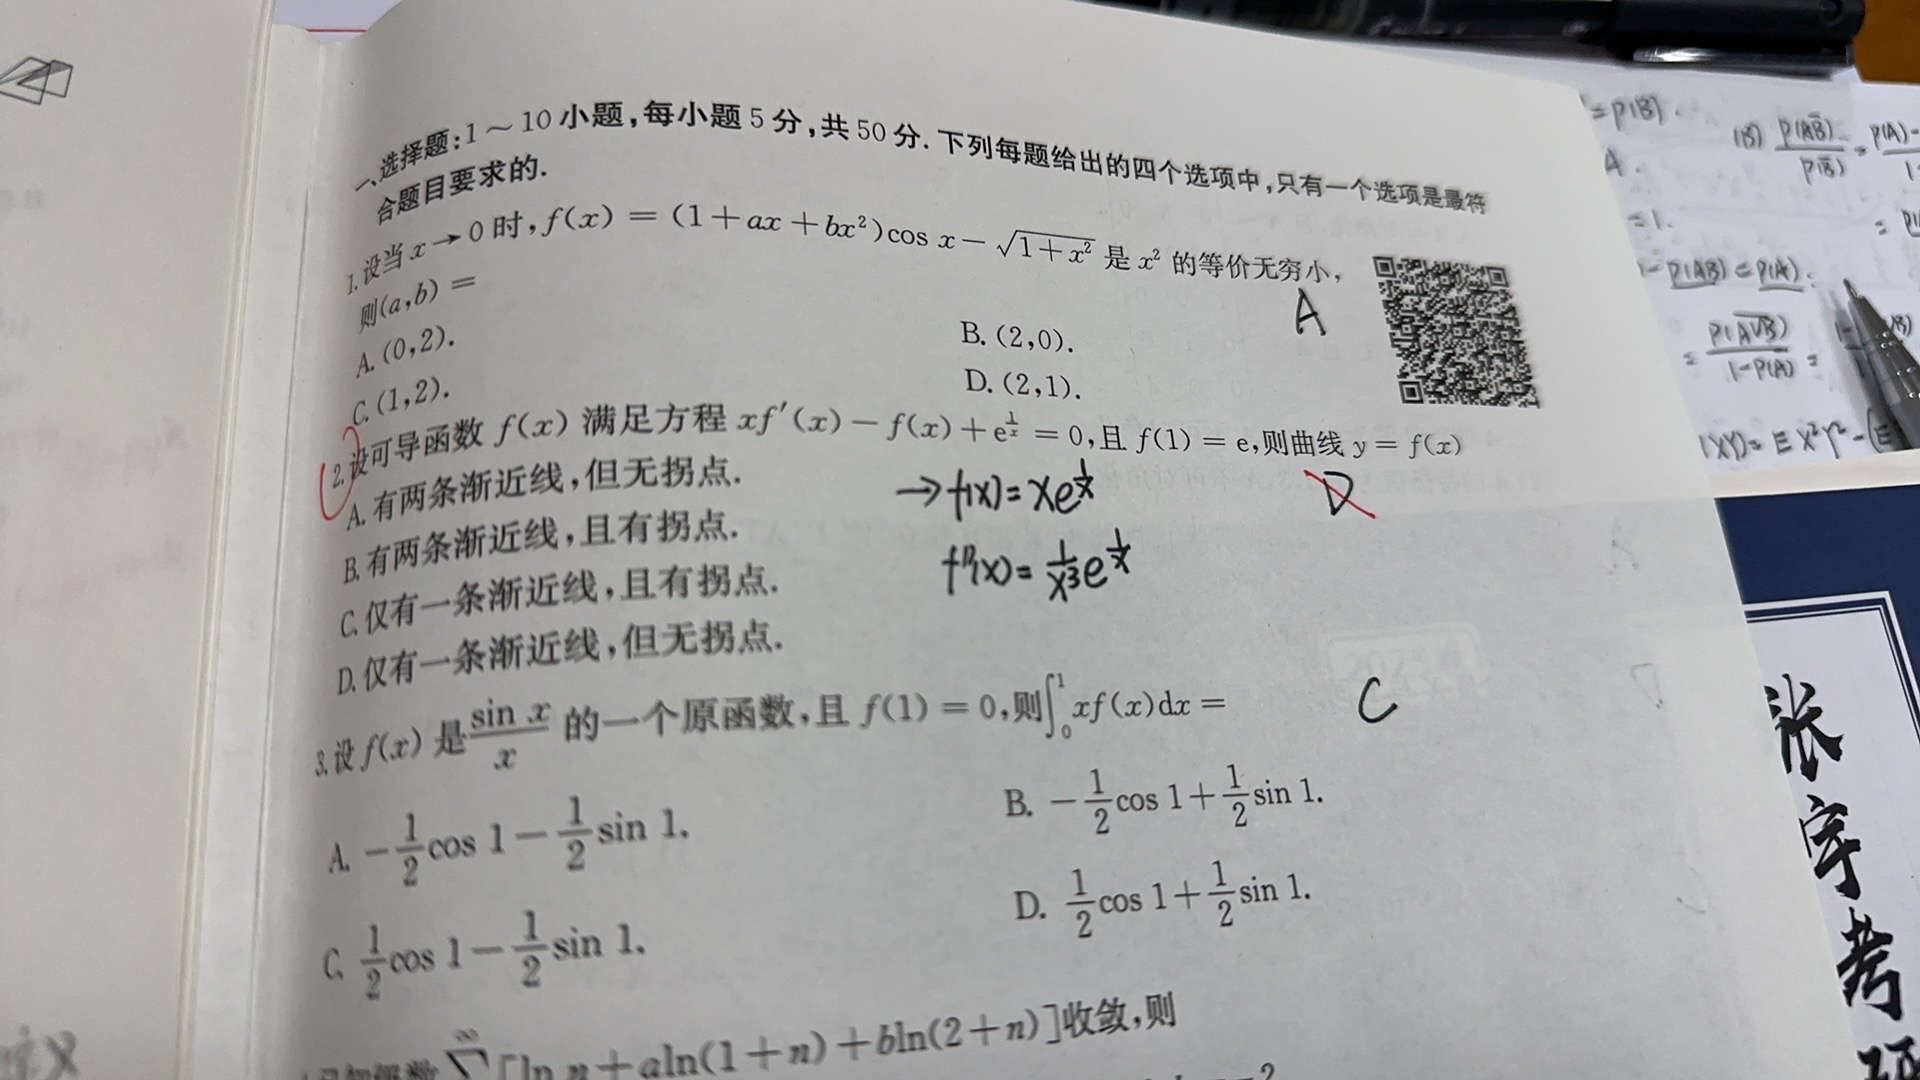 一、选择题:1～10小题,每小题5分,共50分.下列每题给出的四个选项中,只有一个选项是最符
合题目要求的.
1.设当x→0时,f(x)=(1+ax+bx²)cos x-√(1+x²)是x²的等价无穷小,
则(a,b)=
A
A.(0,2).
B.(2,0).
C.(1,2).
D.(2,1).
2.设可导函数f(x)满足方程xf′(x)-f(x)+e^(1/x)=0,且f(1)=e,则曲线y=f(x)
A.有两条渐近线,但无拐点.
→f(x)=xe^(1/x)
D
B.有两条渐近线,且有拐点.
f″(x)=1/x³ e^(1/x)
C.仅有一条渐近线,且有拐点.
D.仅有一条渐近线,但无拐点.
3.设f(x)是sin x/x的一个原函数,且f(1)=0,则∫₀¹xf(x)dx=
C
A.-1/2 cos 1-1/2 sin 1.
B.-1/2 cos 1+1/2 sin 1.
C.1/2 cos 1-1/2 sin 1.
D.1/2 cos 1+1/2 sin 1.
∑[ln n+aln(1+n)+bln(2+n)]收敛,则
=P(B).
(B) P(AB̅)/P(B̅) = P(A)-
A.
=1.
-P(AB)=P(A).
= P(A̅∪̅B̅)/1-P(A) =
(XY)=EX²Y²-(E
张
宇
考